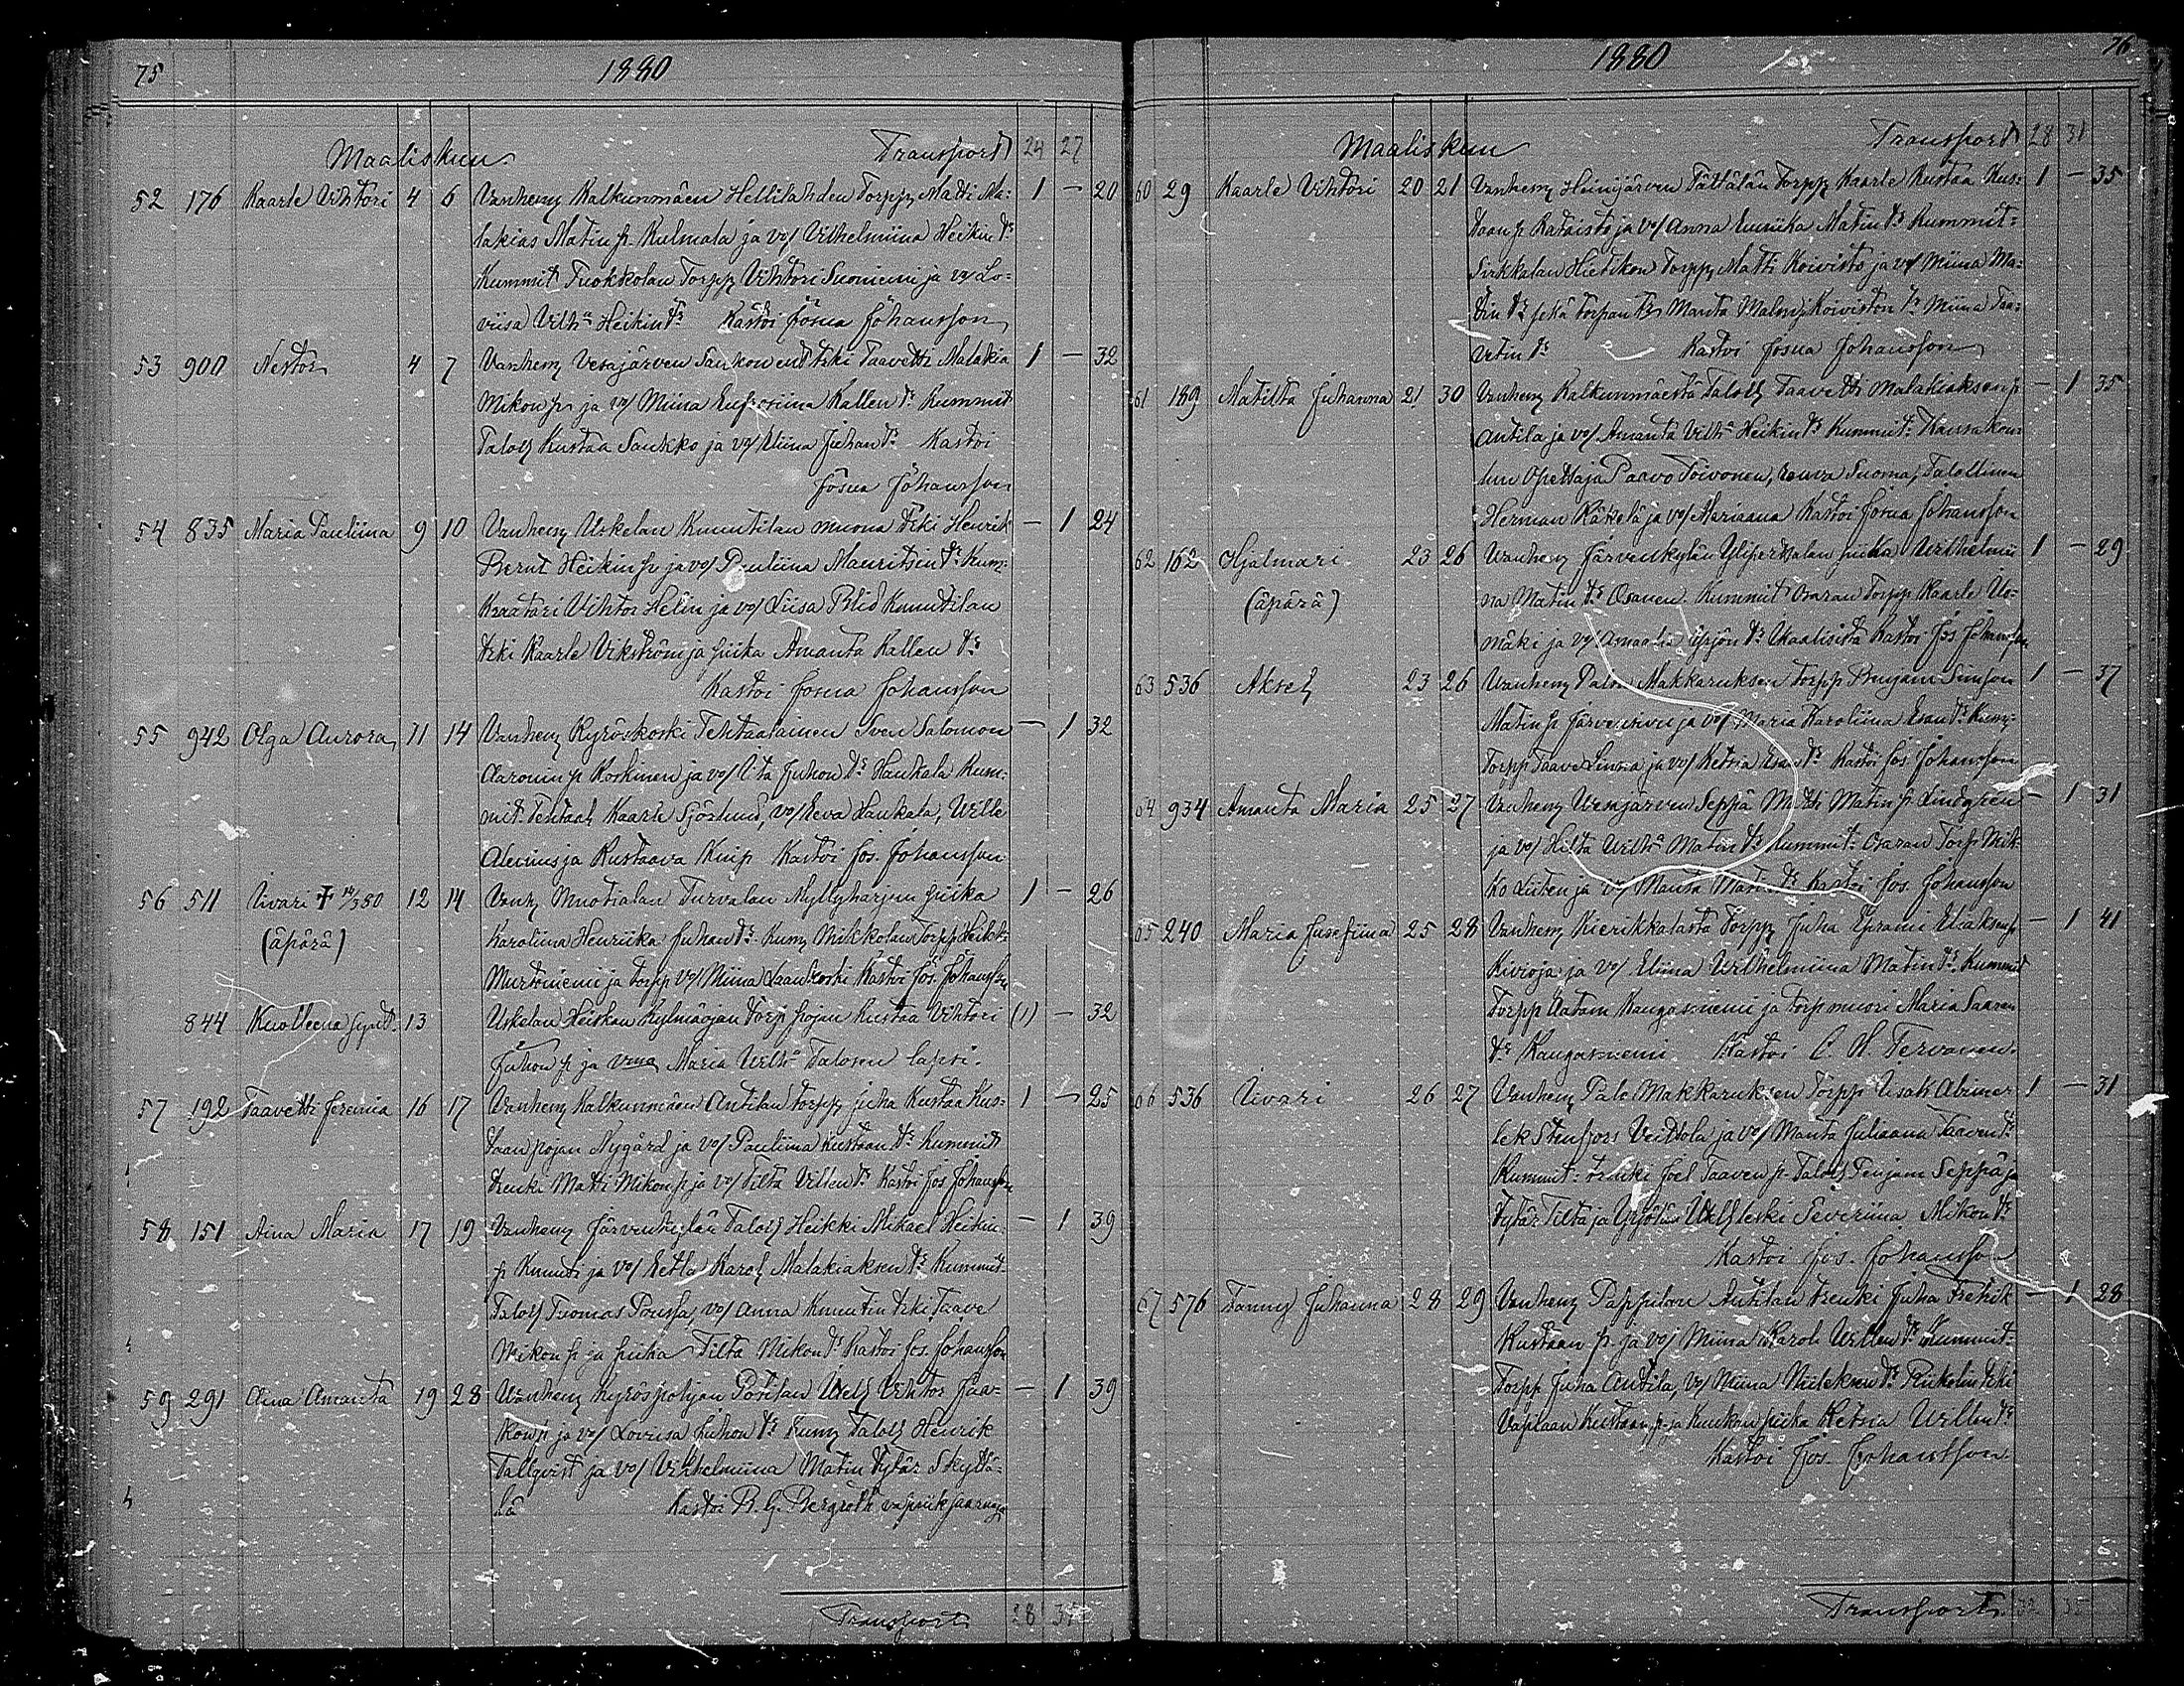 75 1880
Maaliskuu Transport 24 27
52 176 Kaarle Vihtori 4 6 Vanhem Kalkunmäen Hellilahden Torpp Matti Ma= 1 — 20
lakias Matin p. Kulmala ja vo/ Vilhelmiina Heikin tr
Kummit Tuokkolan Torpp Vihtori Suoniemi ja vo/ Lo=
viisa Vilha Heikin tr Kastoi Josua Johansson
53 900 Nestor 4 7 Vanhem Vesajärven Saukon Trki Taavetti Malakia 1 — 32
Mikon p. ja vo/ Miina Eufrosiina Kallen tr Kummit
Talol Kustaa Saukko ja vo/ Miina Juhan tr Kastoi
Josua Johansson
54 835 Maria Pauliina 9 10 Vanhem Uskelan Knuutilan muona trki Henrik — 1 24
Bernt Heikin p. ja vo/ Pauliina Mauritsin tr Kum=
Kraatari Vihtor Helin ja vo/ Liisa Blid Knuutilan
trki Kaarle Vikström ja piika Amanta Kallen tr
Kastoi Josua Johansson
55 942 Olga Aurora 11 14 Vanhem Kyröskoski Tehtaalainen Sven Salomon — 1 32
Aaronin p. Koskinen ja vo/ Juhon tr Haukala Kum=
mit. Tehtaal Kaarle Sjöslund, vo/ Eeva Haukala, Wille
Alenius ja Kustaava Knip Kastoi Jos. Johansson
56 511 Iivari † 14/3 80 12 14 Vanh Muotialan Turvalan Myllyharjun piika 1 — 26
(äpärä) Karoliina Henriika Juhan tr Kum Mikkolan Torpp Heikk
Murtoniemi ja torpp vo/ Miina Laankoski Kastoi Jos. Johansson
844 Kuolleena synt. 13 Uskelan Heiskan Kylmäojan Torp pojan Kustaa Vihtori (1) — 32
Juhon p. ja vmo Maria Vilha Talosen lapsi.
57 192 Taavetti Jeremia 16 17 Vanhem Kalkunmäen Antilan torpp Juha Kustaa Kus= 1 — 25
taan pojan Nygård ja vo/ Pauliina Kustaan tr Kummit
trenki Matti Mikon p. ja vo/ Tilta Villen tr Kastoi Jos Johansson
58 151 Aina Maria 17 19 Vanhem Järvenkylän Talol Heikki Mikael Heikin — 1 39
p. Knuuti ja vo/ Hetla Karol Malakiaksen tr Kummit
Talol Tuomas Poussa, vo/ Anna Knuutin trki Taave
Mikon p. ja piika Tilta Mikon tr Kastoi Jos. Johansson
59 291 Aina Amanta 19 28 Vanhem Kyröspohjan Pörilän Itsell Vihtor Jaa= — 1 39
kon p. ja vo/ Loviisa Juhon tr Kum Talol Henrik
Tallqvist ja vo/ Vilhelmiina Matin tytär Skyttä=
lä Kastoi R. G. Bergroth
Transport 28 31
1880 76
Maaliskuu Transport 28 31
60 29 Kaarle Vihtori 20 21 Vanhem Heinijärven Tättälän Torpp Kaarle Kustaa Kus= 1 — 35
taan p. Rataisto ja vo/ Anna Emiika Matin tr Kummit=
Sirkkalan Hietikon Torpp Matti Koivisto ja vo/ Miina Ma=
tin tr sekä torpan tr Manta Malm Koiviston tr Miina Taa=
vetin tr Kastoi Josua Johansson
61 189 Matilta Juhanna 21 30 Vanhem Kalkunmäestä Talol Taavetti Malakiaksen p. — 1 35
Antila ja vo/ Amanta Vilha Heikin tr Kummit: Kansakou=
lun Opettaja Paavo Toivonen, rouva Suoma, Talollinen
Herman Käkelä ja vo/ Mariaana Kastoi Josua Johansson
62 162 Hjalmari 23 26 Vanhem Järvenkylän Ylipertalan piika Vilhelmii 1 — 29
(äpärä) na Matin tr Osanen Kummit Osaran Torpp Kaarle Us=
mäki ja vo/ Amaalia Yrjön tr Ikaalisista Kastoi Jos Johansson
63 536 Aksel 23 26 Vanhem Palon Makkaruksen Torpp Penjami Simson 1 — 37
Matin p. Järvensivu ja vo/ Maria Karoliina Esan tr Kum=
Torpp Taave Linna ja vo/ Ketria Esan tr Kastoi Jos. Johansson
64 934 Amanta Maria 25 27 Vanhem Vesajärven Seppä Matti Matin p. Lindgren — 1 31
ja vo/ Hilta Vilha Matin tr Kummit: Osaran Torp Mik=
ko Liiten ja vo/ Manta Matin tr Kastoi Jos. Johansson
65 240 Maria Jusefiina 25 28 Vanhem Kierikkalasta Torpp Juha Efraim Eliaksen p. — 1 41
Kivioja ja vo/ Eliina Vilhelmiina Matin tr Kummit
Torpp Aatam Kangasniemi ja torp muori Maria Saaren
tr Kangasniemi Kastoi C. H. Tervonen.
66 536 Iivari 26 27 Vanhem Palo Makkaruksen Torpp Iisak Abimer 1 — 31
lek Stenfors Veittola ja vo/ Manta Juliaana Taaven tr
Kummit: trenki Joel Taaven p. Talol Penjam Seppä ja
tytär Tilta ja Itselleski Severiina Mikon tr
Kastoi Jos. Johansson
67 576 Fanny Juhanna 28 29 Vanhem Pappilan Antilan trenki Juha Fretrik — 1 28
Kustaan p. ja vo/ Miina Karol Villen tr Kummit=
Torpp Juha Antila, vo/ Miina tr Riikelin trki
Vaplaan Kustaan p. ja Kuukan piika Ketria Villen tr
Kastoi Jos. Johansson.
Transport 32 35